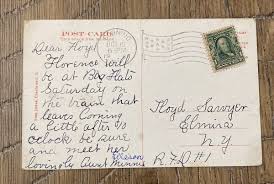 POST CARD
Dear Floyd
Florence will
be at Big Flats
Saturday on
the train that
leaves Corning
a little after 9/0
o'clock be sure
and meet her
lovingly Aunt Minnie
Floyd Sawyer
Elmira
N Y
R.F.D #1